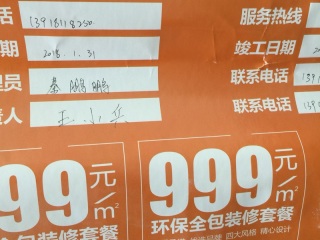 话 13918118250 服务热线
期 2018.1.31 竣工日期 20
理员 秦鹏鹏 联系电话 139
责人 王小兵 联系电话 139
99元/m² 999元/m²
装修套餐 环保全包装修套餐
四大风格 精心设计